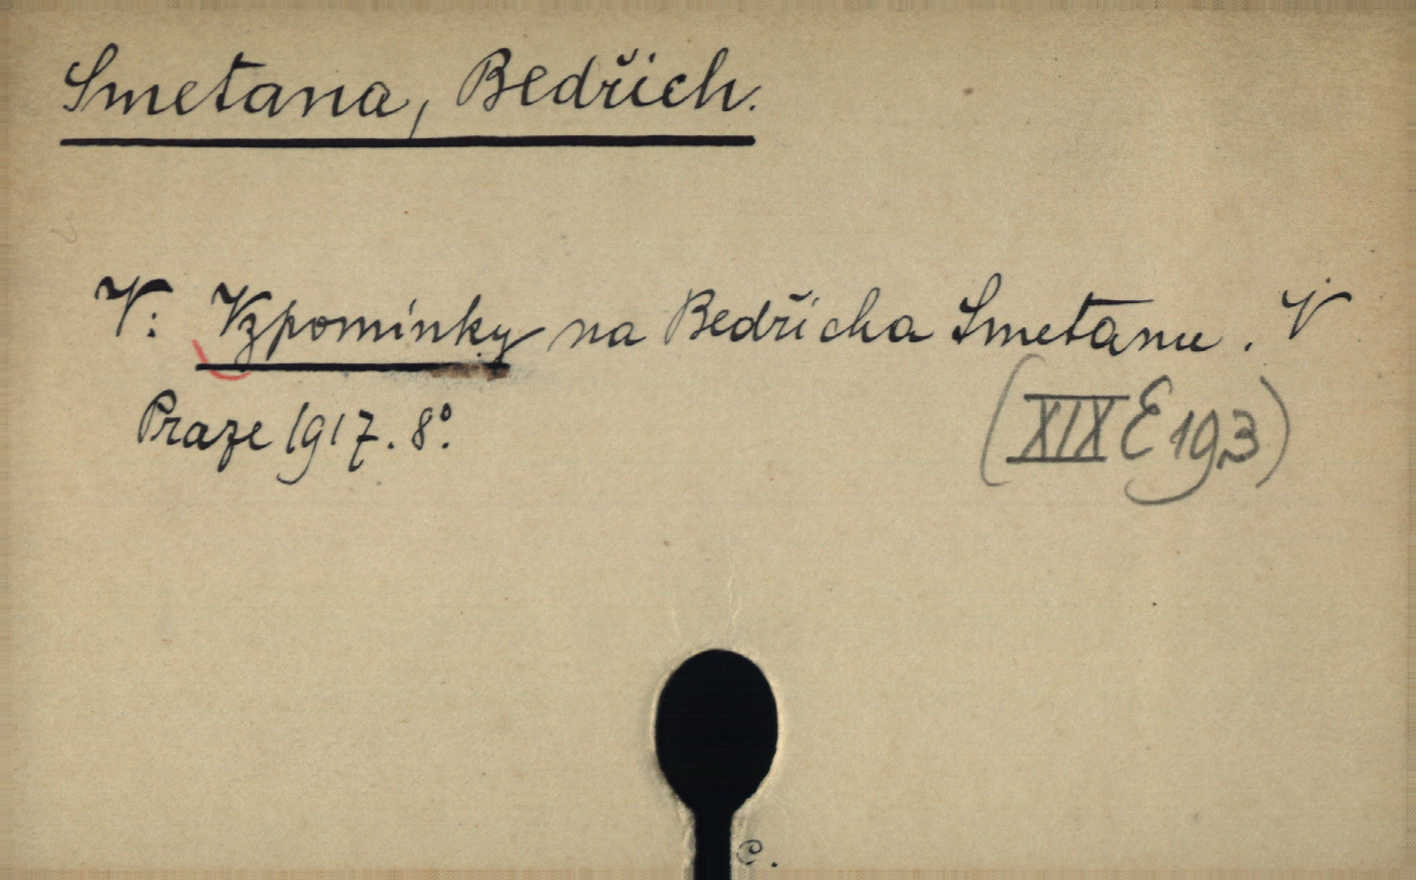 Smetana, Bedřich.
V: Vzpomínky na Bedřicha Smetanu. V
Praze 1917. 8º.
(XIX E 193)
C.